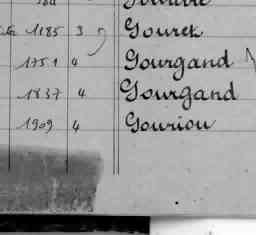 1185 3 Gourek
1751 4 Gourgand
1837 4 Gourgand
1909 4 Gouriou